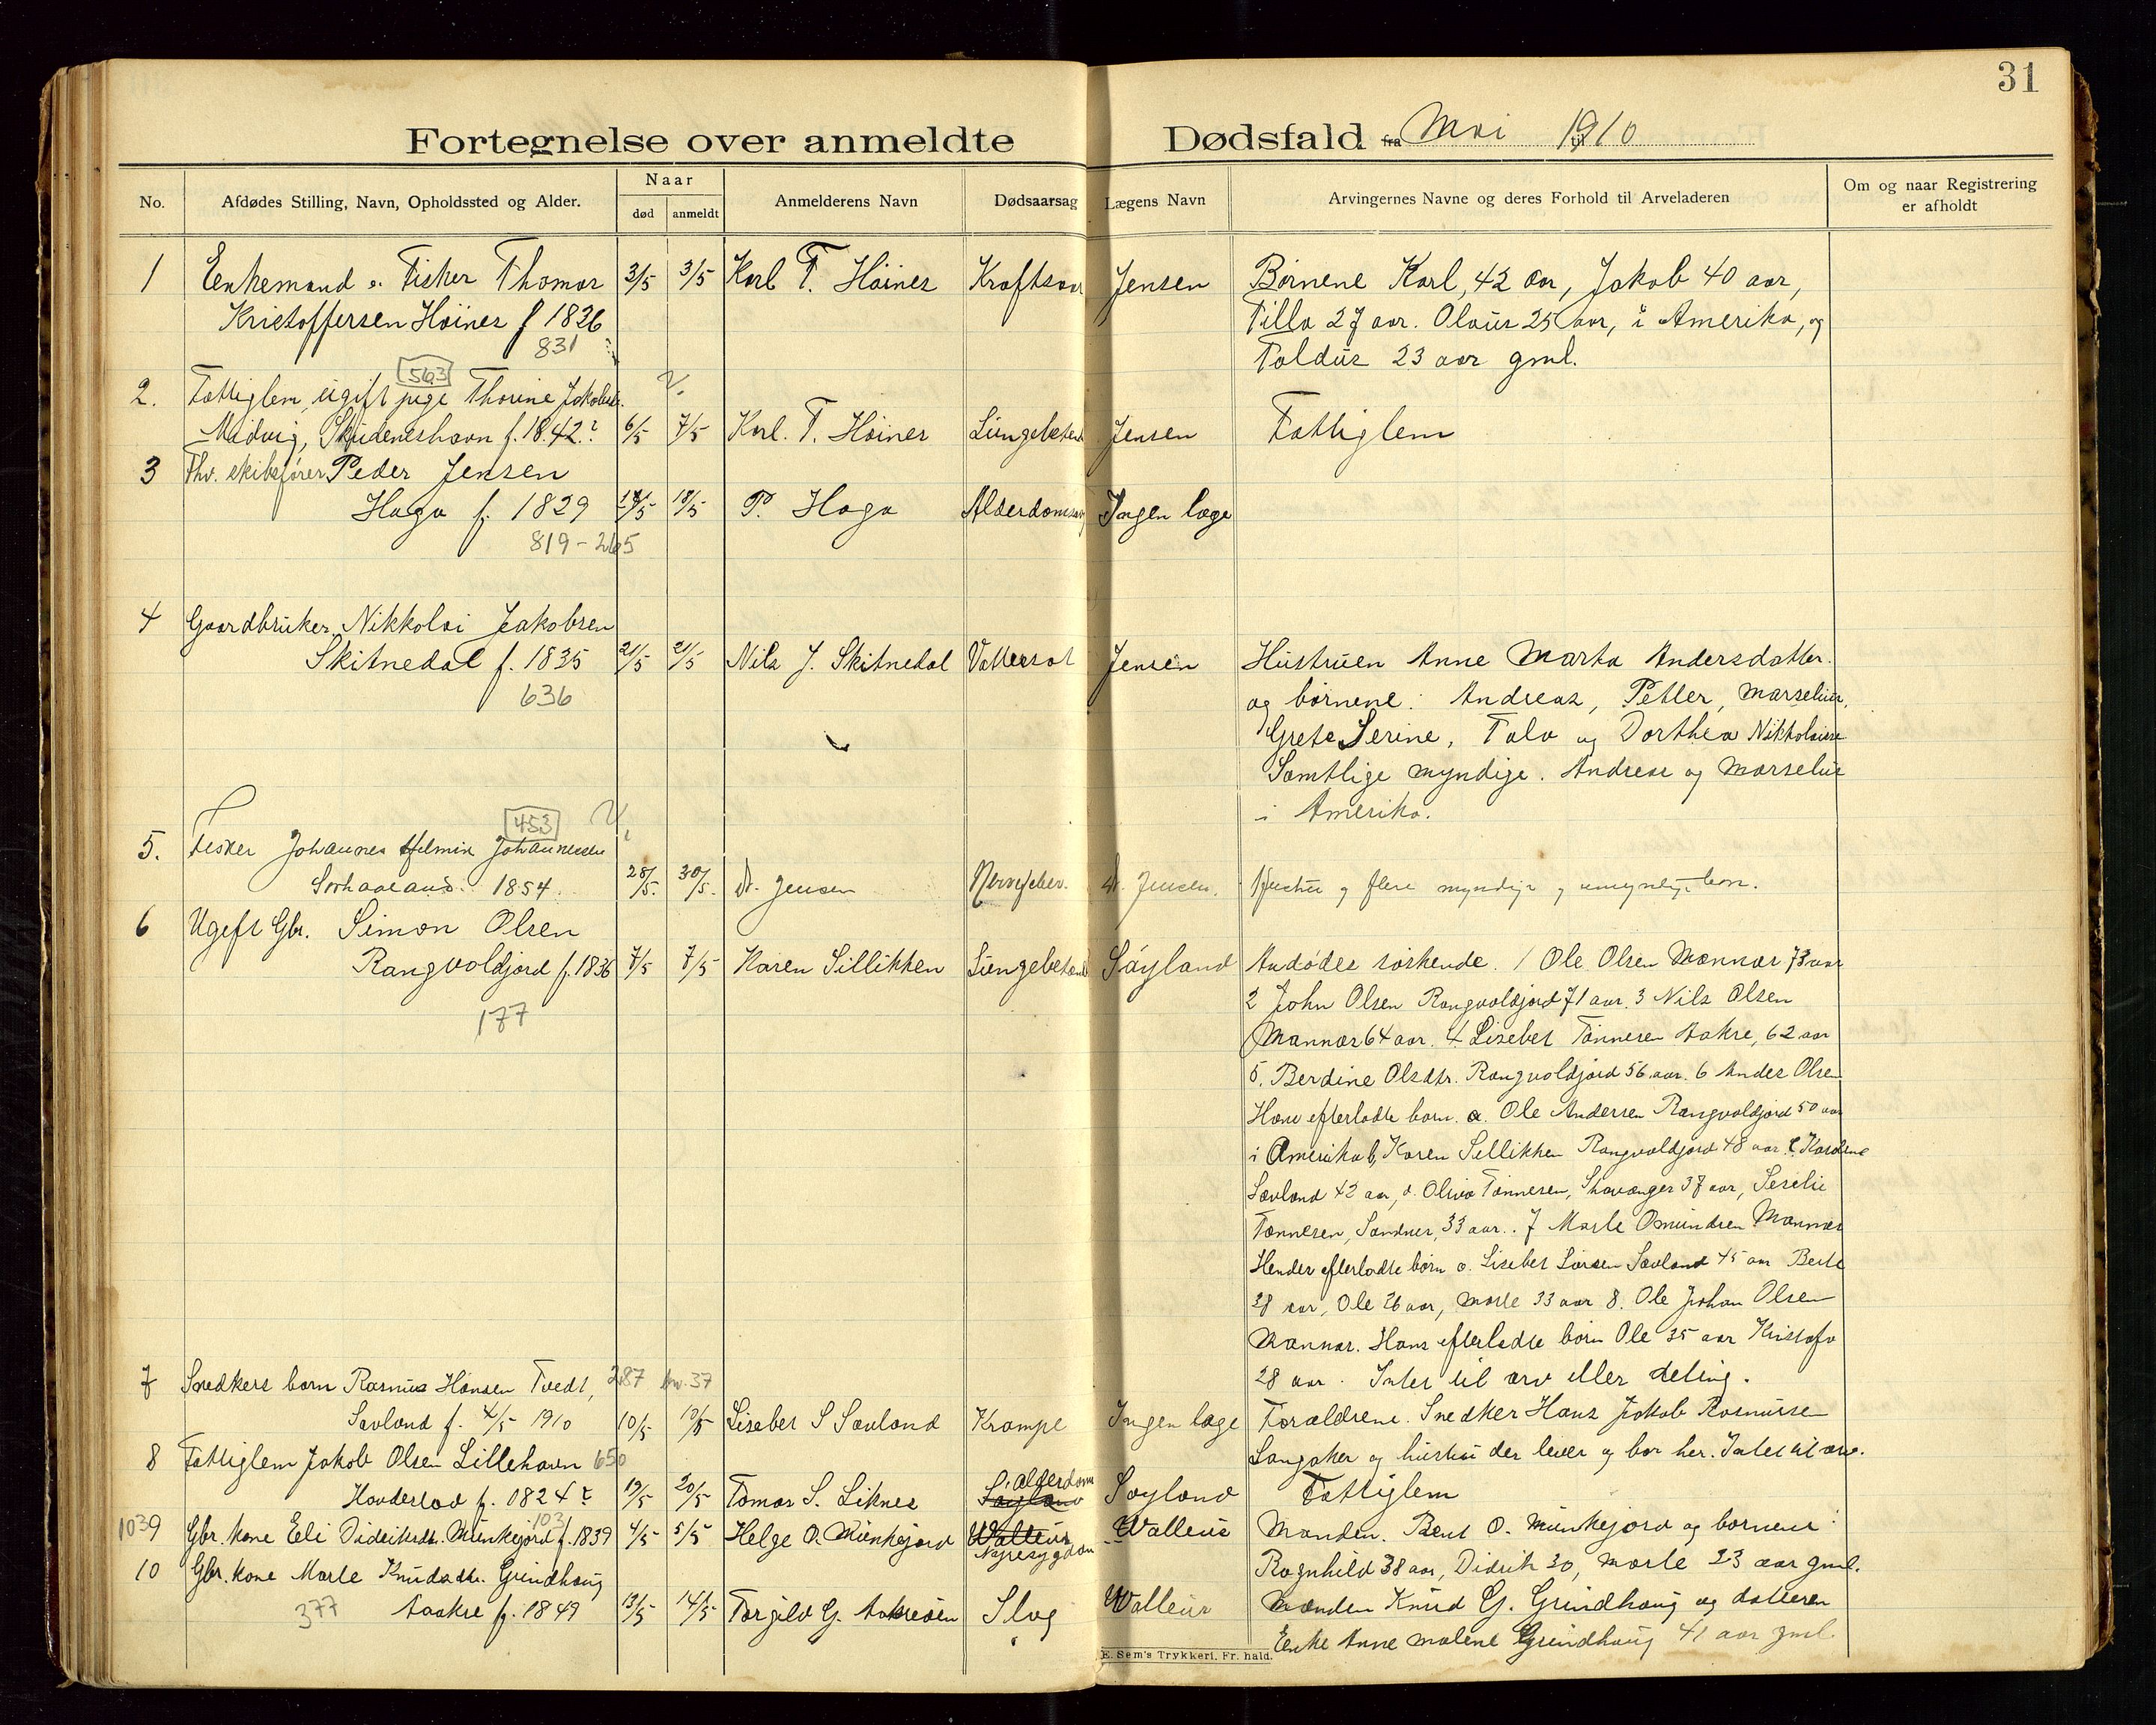 31
Fortegnelse over anmeldte Dødsfald fra Mai til 1910
No. Afdødes Stilling, Navn, Opholdssted og Alder. Naar død anmeldt Anmelderens Navn Dødsaarsag Lægens Navn Arvingernes Navne og deres Forhold til Arveladeren Om og naar Registrering er afholdt
1 Enkemand o. Fisker Thomas 3/5 3/5 Karl T. Høines Kraftsaar Jensen Børnene Karl, 42 aar, Jakob 40 aar,
Kristoffersen Høines f 1826 Tilla 27 aar. Olaus 25 aar, i Amerika, og
831 Taldus 23 aar gml.
563
2. Fattiglem, ugift pige Thorine Jakobsd.
Midvig, Skudeneshavn f. 1842? 6/5 7/5 Karl. T. Høines Lungebetend Jensen Fattiglem
3 Fhv. skibsfører Peder Jensen
Haga f. 1829 18/5 P. Haga Alderdomssvag Ingen læge
819 - 265
4 Gaardbruker Nikkolai Jakobsen
Skitnedal f. 1835 21/5 21/5 Nils J. Skitnedal Vattersot Jensen Hustruen Anne Marta Andersdatter.
636 og børnene: Andreas, Petter, Marselius,
Grete Serine, Tala og Dorthea Nikkolaisen
Samtlige myndige. Andreas og Marselius
i Amerika.
453
5. Fisker Johannes Helmik Johannessen
Sørhaaland 1854. 28/5. 30/5. Dr. Jensen Dr. Jensen. Hustru og flere myndige og umyndige børn.
6 Ugift Gbr. Simon Olsen
Rangvoldjord f. 1836 7/5 7/5 Karen Sillikken Lungebetend Søyland Avdødes søskende. 1 Ole Olsen Mannas 73 aar
177 2 John Olsen Rangvoldjord 71 aar. 3 Nils Olsen
Mannas 64 aar. 4. Lisebet Tønnesen Aakre, 62 aar
5. Berdine Olsdtr. Rangvoldjord 56 aar. 6 Andes Olsen
Hans efterladte børn. a. Ole Andersen Rangvoldjord 50 aar
i Amerika b, Karen Sillikken Rangvoldjord 48 aar. c Kardine
Søvland 42 aar, d. Oliva Tønnesen, Stavanger 37 aar, Serelie
Tønnesen, Sandnes, 33 aar. 7 Marte Omundsen Mannas
Hendes efterladte børn a. Lisebet Larsen Søvland 45 aar Berte
28 aar, Ole 26 aar, Marte 33 aar 8. Ole Johan Olsen
Mannas. Hans efterladte børn Ole 35 aar Kristofa
28 aar. Intet til arv eller deling.
7 Snedkers barn Rasmus Hansen Tvedt, 287 37
Søvland f. 4/5 1910 10/5 10/5 Lisebet S Søvland Krampe Ingen læge Forældrene. Snedker Hans Jakob Rasmussen
Langaker og hustru der lever og bor her. Intet til arv.
8 Fattiglem Jakob Olsen Lillehavn 650
Hovdestad f. 1824? 19/5 20/5 Tomas S. Liknes Alderdoms Søyland Fattiglem
1039 Gbr. kone Eli Didriksdtr. Munkejord f. 1839 103 4/5 5/5 Helge O. Munkejord Walleus Nyresygdom Walleus Manden. Bent O. Munkejord og børnene:
Ragnhild 38 aar, Didrik 30, Marte 23 aar gml.
10 Gbr. kone Marte Knudsdtr. Grindhaug
377 Aaakre f. 1849 13/5 14/5 Torgild G. Aakreøen Slag Walleus Manden Knud G. Grindhaug og datteren
Enke Anne Malene Grindhaug 41 aar gml.
E. Sem's Trykkeri, Fr. hald.